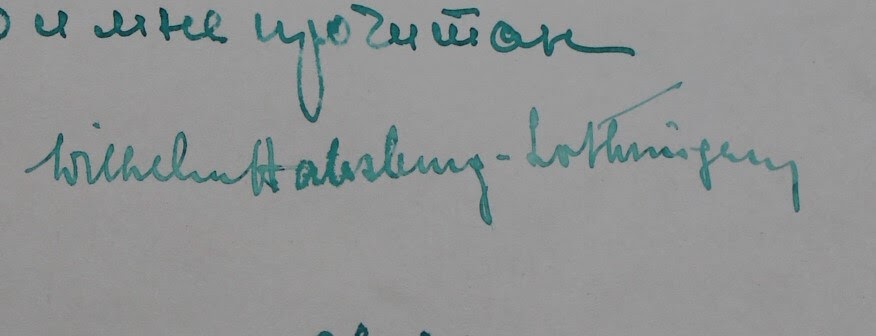 и мне прочитан
Wilhelm Habsburg-Lothringen